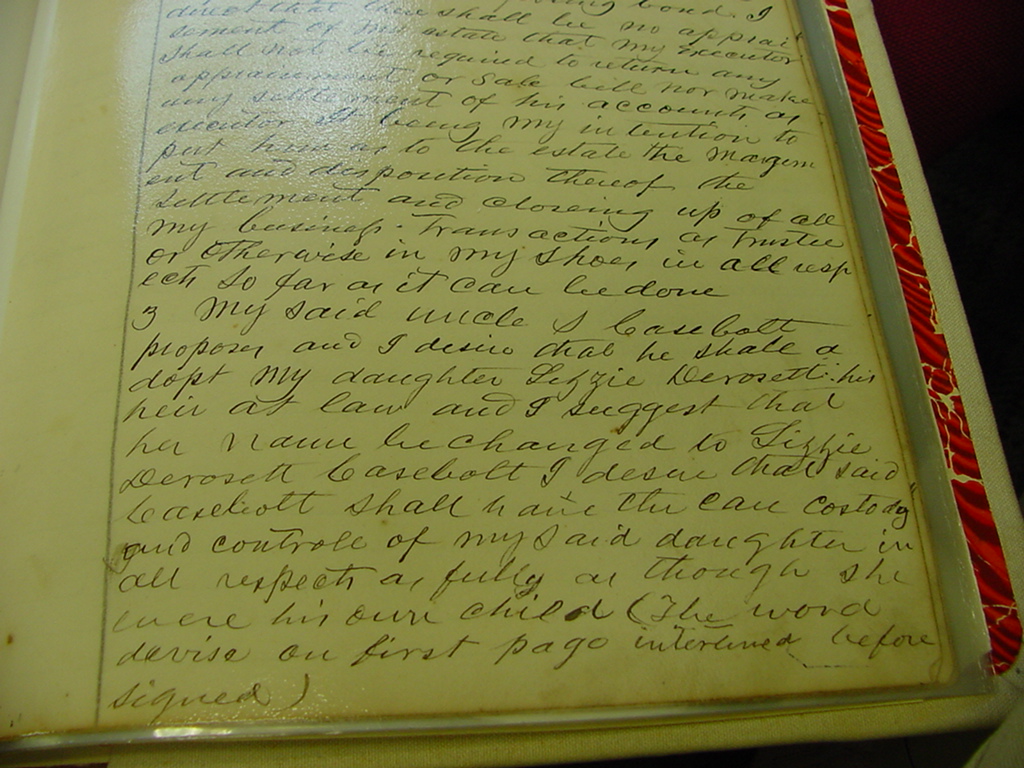 direct that there shall be no apprai
sement of my estate that my executor
shall not be required to return any
appraisement or sale bill nor make
any settlement of his accounts as
executor It being my intention to
put him as to the estate the Managem
ent and disposition thereof the
settlement and closeing up of all
my business. Transactions as trustee
or otherwise in my shoes in all resp
ects so far as it can be done
3 My said uncle S Casebolt
proposes and I desire that he shall a
dopt my daughter Lizzie Derosett his
heir at law and I suggest that
her name be changed to Lizzie
Derosett Casebolt I desire that said
Casebolt shall have the care costody
and controle of my said daughter in
all respects as fully as though she
were his own child (The word
devise on first page interlined before
signed)